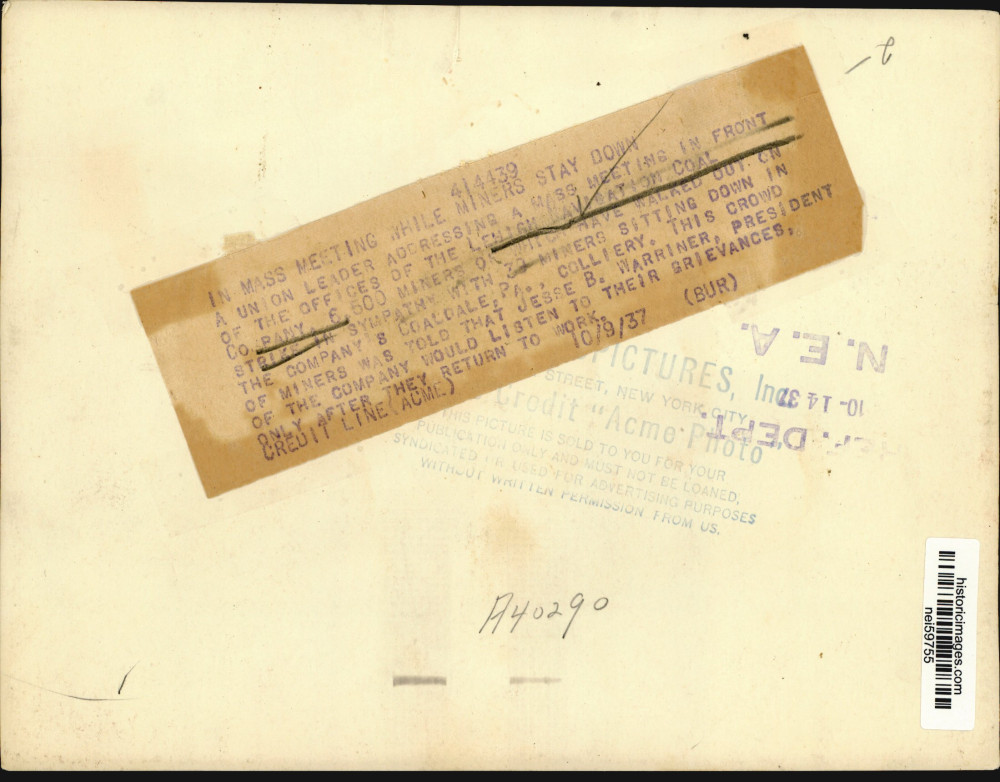 414439
IN MASS MEETING WHILE MINERS STAY DOWN
A UNION LEADER ADDRESSING A MASS MEETING IN FRONT
OF THE OFFICES OF THE LEHIGH NAVIGATION COAL
COMPANY. 6,500 MINERS OF WHICH HAVE WALKED OUT ON
STRIKE IN SYMPATHY WITH MINERS SITTING DOWN IN
THE COMPANY'S COALDALE, PA., COLLIERY. THIS CROWD
OF MINERS WAS TOLD THAT JESSE B. WARRINER, PRESIDENT
OF THE COMPANY WOULD LISTEN TO THEIR GRIEVANCES,
ONLY AFTER THEY RETURN TO WORK.
CREDIT LINE (ACME) 10/9/37 (BUR)
PICTURES, Inc.
STREET, NEW YORK CITY
Credit "Acme Photo"
THIS PICTURE IS SOLD TO YOU FOR YOUR
PUBLICATION ONLY AND MUST NOT BE LOANED,
SYNDICATED OR USED FOR ADVERTISING PURPOSES
WITHOUT WRITTEN PERMISSION FROM US.
N.E.A.
10-14 37
DEPT.
A40290
historicimages.com
nei59755